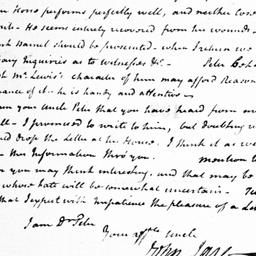 Hone performs perfectly well, and neither
He seems entirely recovered from his wounds -
should be presented. when I return we
Inquiries as to witnesses &c. - Peter
Mr. Lewis's character of him may afford Reason
of it - he is handy and attentive -
your Uncle Peter that you have heard from me
- I promised to write to him, but doubting
drop the Letter at his House. I think it as well
this Information thro' you. mention
you may think interesting, and that may be
whose fate will be somewhat uncertain -
that I expect with impatience the pleasure of a
I am Dr. Peter
Your affte. Uncle
John Jay